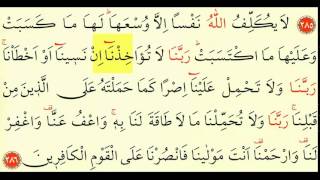 ٢٨٥ لَا يُكَلِّفُ اللّٰهُ نَفْسًا اِلَّا وُسْعَهَاۜ لَهَا مَا كَسَبَتْ
وَعَلَيْهَا مَا اكْتَسَبَتْۜ رَبَّنَا لَا تُؤَاخِذْنَٓا اِنْ نَسٖينَٓا اَوْ اَخْطَأْنَاۚ
رَبَّنَا وَلَا تَحْمِلْ عَلَيْنَٓا اِصْرًا كَمَا حَمَلْتَهُ عَلَى الَّذٖينَ مِنْ
قَبْلِنَاۚ رَبَّنَا وَلَا تُحَمِّلْنَا مَا لَا طَاقَةَ لَنَا بِهٖۚ وَاعْفُ عَنَّا۠ وَاغْفِرْ
لَنَا۠ وَارْحَمْنَا۠ اَنْتَ مَوْلٰينَا فَانْصُرْنَا عَلَى الْقَوْمِ الْكَافِرٖينَ ٢٨٦